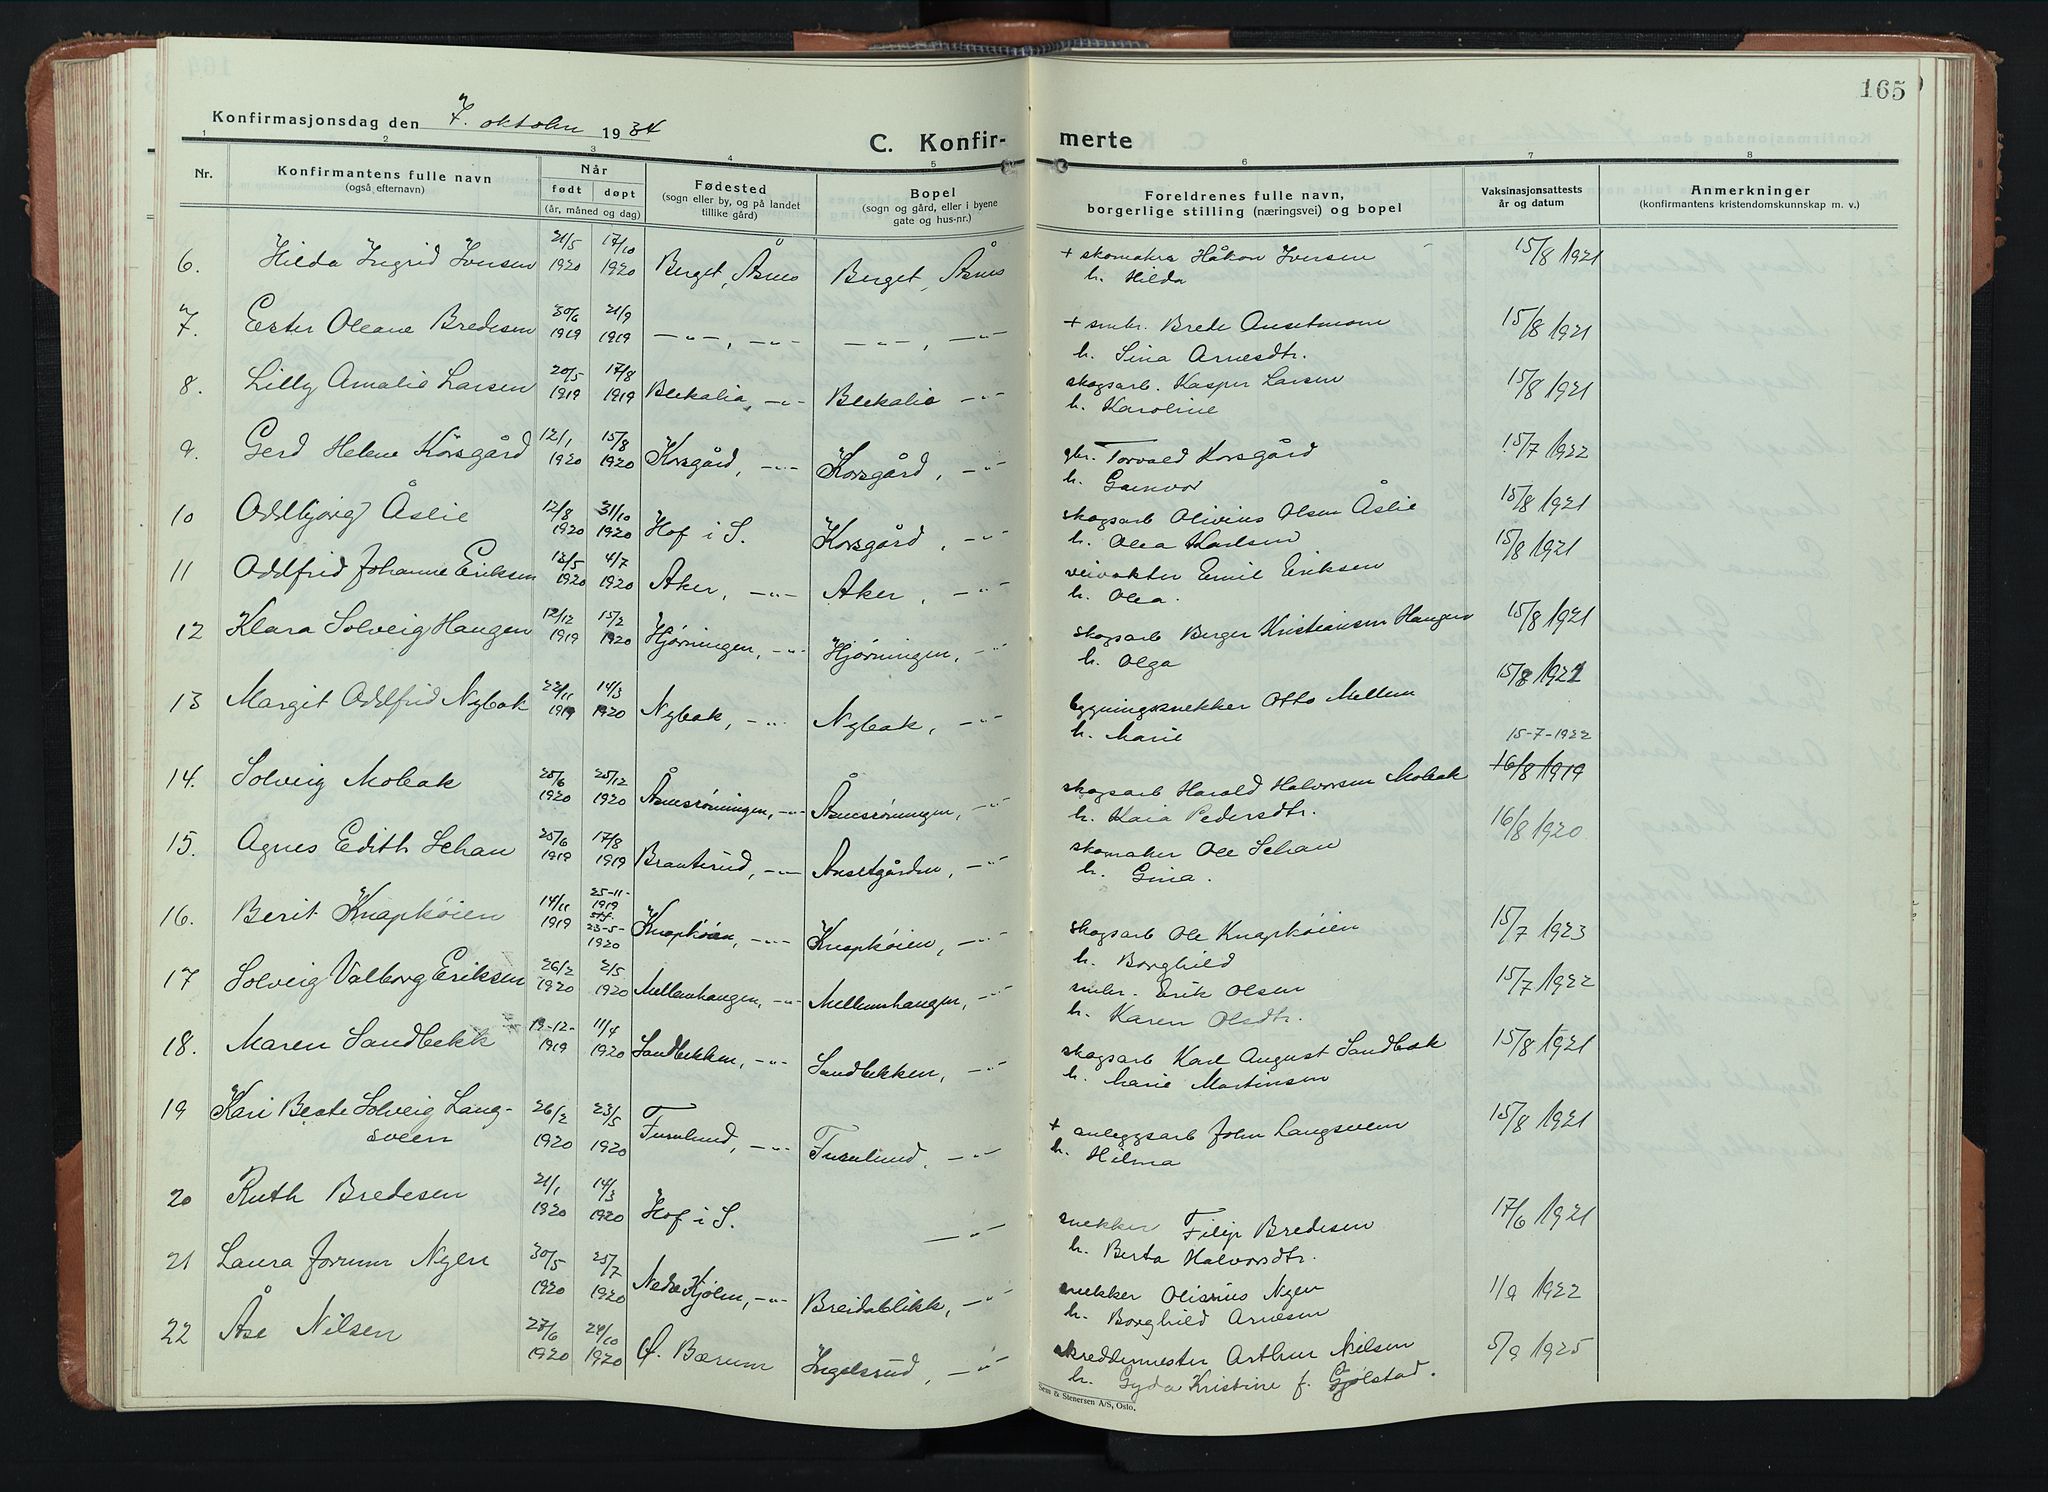 165
Konfirmasjonsdag den 7. oktober 1934
C. Konfir- merte
1 2 3 4 5 6 7 8
Nr. Konfirmantens fulle navn (også efternavn) Når født døpt (år, måned og dag) Fødested (sogn eller by, og på landet tillike gård) Bopel (sogn og gård, eller i byene gate og hus-nr.) Foreldrenes fulle navn, borgerlige stilling (næringsvei) og bopel Vaksinasjonsattests år og datum Anmerkninger (konfirmantens kristendomskunnskap m. v.)
6. Hilda Ingrid Iversen 21/5 1920 17/10 1920 Berget, Åsnes Berget, Åsnes + skomaker Håkon Iversen 15/8 1921
h. Hilda
7. Ester Oleane Bredesen 30/6 1919 21/9 1919 —"—, —"— —"—, —"— + smbr. Brede Ansetmoen 15/8 1921
h. Sina Arnesdtr.
8. Lilly Amalie Larsen 20/5 1919 17/8 1919 Blekalia, —"— Blekalia —"— skogsarb. Kasper Larsen 15/8 1921
h. Karoline
9. Gerd Helene Korsgård 12/1 1920 15/8 1920 Korsgård, —"— Korsgård, —"— gbr. Torvald Korsgård 15/7 1922
h. Gunvor
10 Oddbjørg Åslie 12/8 1920 31/10 1920 Hof i S. Korsgård, —"— skogsarb Olivius Olsen Åslie 15/8 1921
h. Olea Karlsen
11 Oddfrid Johanne Eriksen 13/5 1920 4/7 1920 Aker, —"— Aker, —"— veivokter Emil Eriksen 15/8 1921
h. Olea.
12 Klara Solveig Haugen 12/12 1919 15/2 1920 Hjørningen, —"— Hjørningen, —"— skogsarb Berger Kristiansen Haugen 15/8 1921
h. Olga
13 Margit Oddfrid Nybak 22/11 1919 14/3 1920 Nybak, —"— Nybak, —"— bygningssnekker Otto Mellem 15/8 1921
h. Marie 15-7-1922
14. Solveig Mobak 25/6 1920 25/12 1920 Åsnesrønningen, —"— Åsnesrønningen, —"— skogsarb Harald Halvorsen Mobak 16/8 1919
h. Kaia Pedersdtr.
15. Agnes Edith Schau 25/6 1919 17/8 1919 Branterud, —"— Ansetgården, —"— skomaker Ole Schau 16/8 1920
h. Gina.
16. Berit Knapkøien 14/11 1919 25-11-1919 stf. 23-5-1920 Knapkøien, —"— Knapkøien, —"— skogsarb Ole Knapkøien 15/7 1923
h. Borghild
17 Solveig Valborg Eriksen 26/2 1920 2/5 1920 Mellemhaugen, —"— Mellemhaugen, —"— smbr. Erik Olsen 15/7 1922
h. Karen Olsdtr.
18. Maren Sandbekk 19-12-1919 11/4 1920 Sandbekken, —"— Sandbekken, —"— skogsarb Karl August Sandbak 15/8 1921
h. Marie Martinsen
19 Kari Beate Solveig Lang- 26/2 1920 23/5 1920 Furulund, —"— Furulund, —"— + anleggsarb John Langsveen 15/8 1921
sveen h. Hilma
20 Ruth Bredesen 21/1 1920 14/3 1920 Hof i S. —"— snekker Filip Bredesen 17/6 1921
h. Berta Halvorsdtr.
21 Laura Jorunn Nyen 30/5 1920 25/7 1920 Nedre Kjølen, —"— Breidablikk, —"— snekker Olisius Nyen 1/9 1922
h. Borghild Arnesen
22 Åse Nilsen 27/6 1920 24/10 1920 Ø. Bærum Ingelsrud, —"— skreddermester Arthur Nilsen 5/9 1925
h. Gyda Kristine f. Gjølstad.
Sem & Stenersen A/S, Oslo.